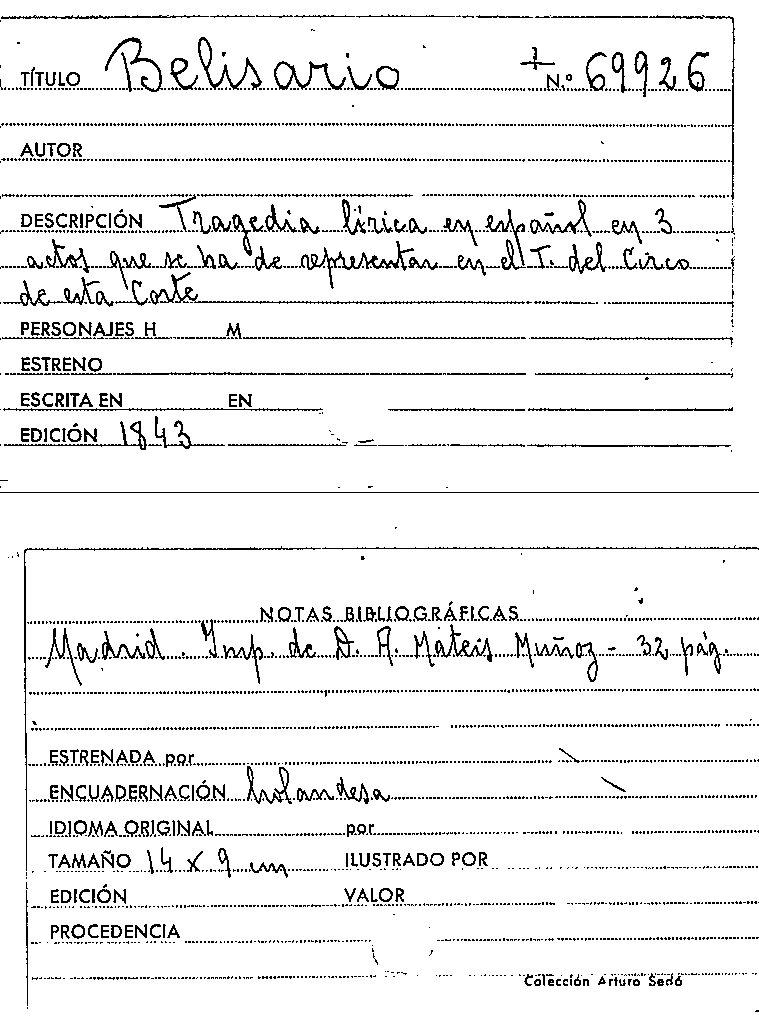 TÍTULO Belisario + N.º 69926
AUTOR
DESCRIPCIÓN Tragedia lírica en español en 3
actos que se ha de representar en el T. del Circo
de esta Corte
PERSONAJES H M
ESTRENO
ESCRITA EN EN
EDICIÓN 1843
NOTAS BIBLIOGRÁFICAS
Madrid. Imp. de D. A. Mateis Muñoz - 32 pág.
ESTRENADA por
ENCUADERNACIÓN holandesa
IDIOMA ORIGINAL por
TAMAÑO 14 x 9 cm ILUSTRADO POR
EDICIÓN VALOR
PROCEDENCIA
Colección Arturo Sedó